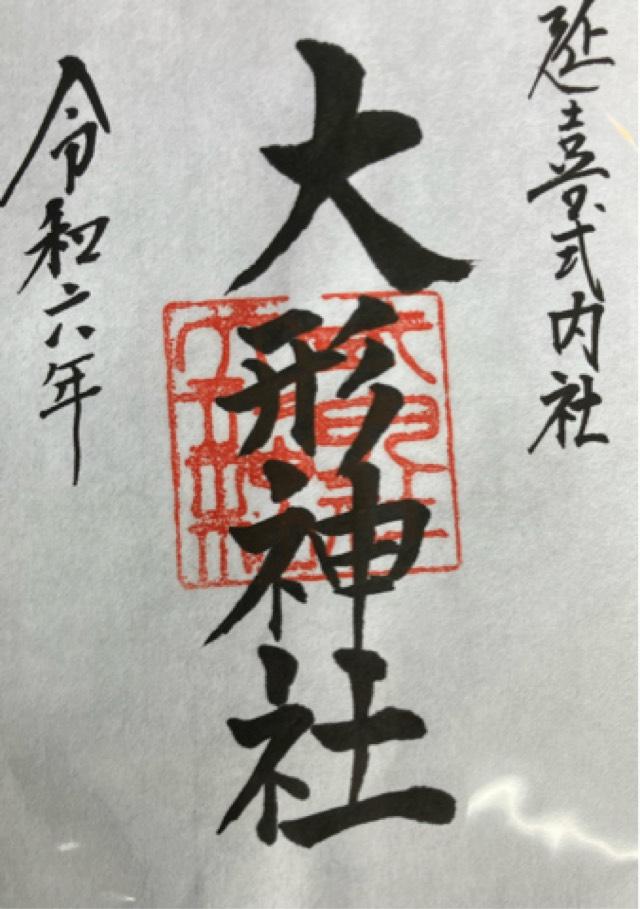 延喜式内社
大形神社
令和六年